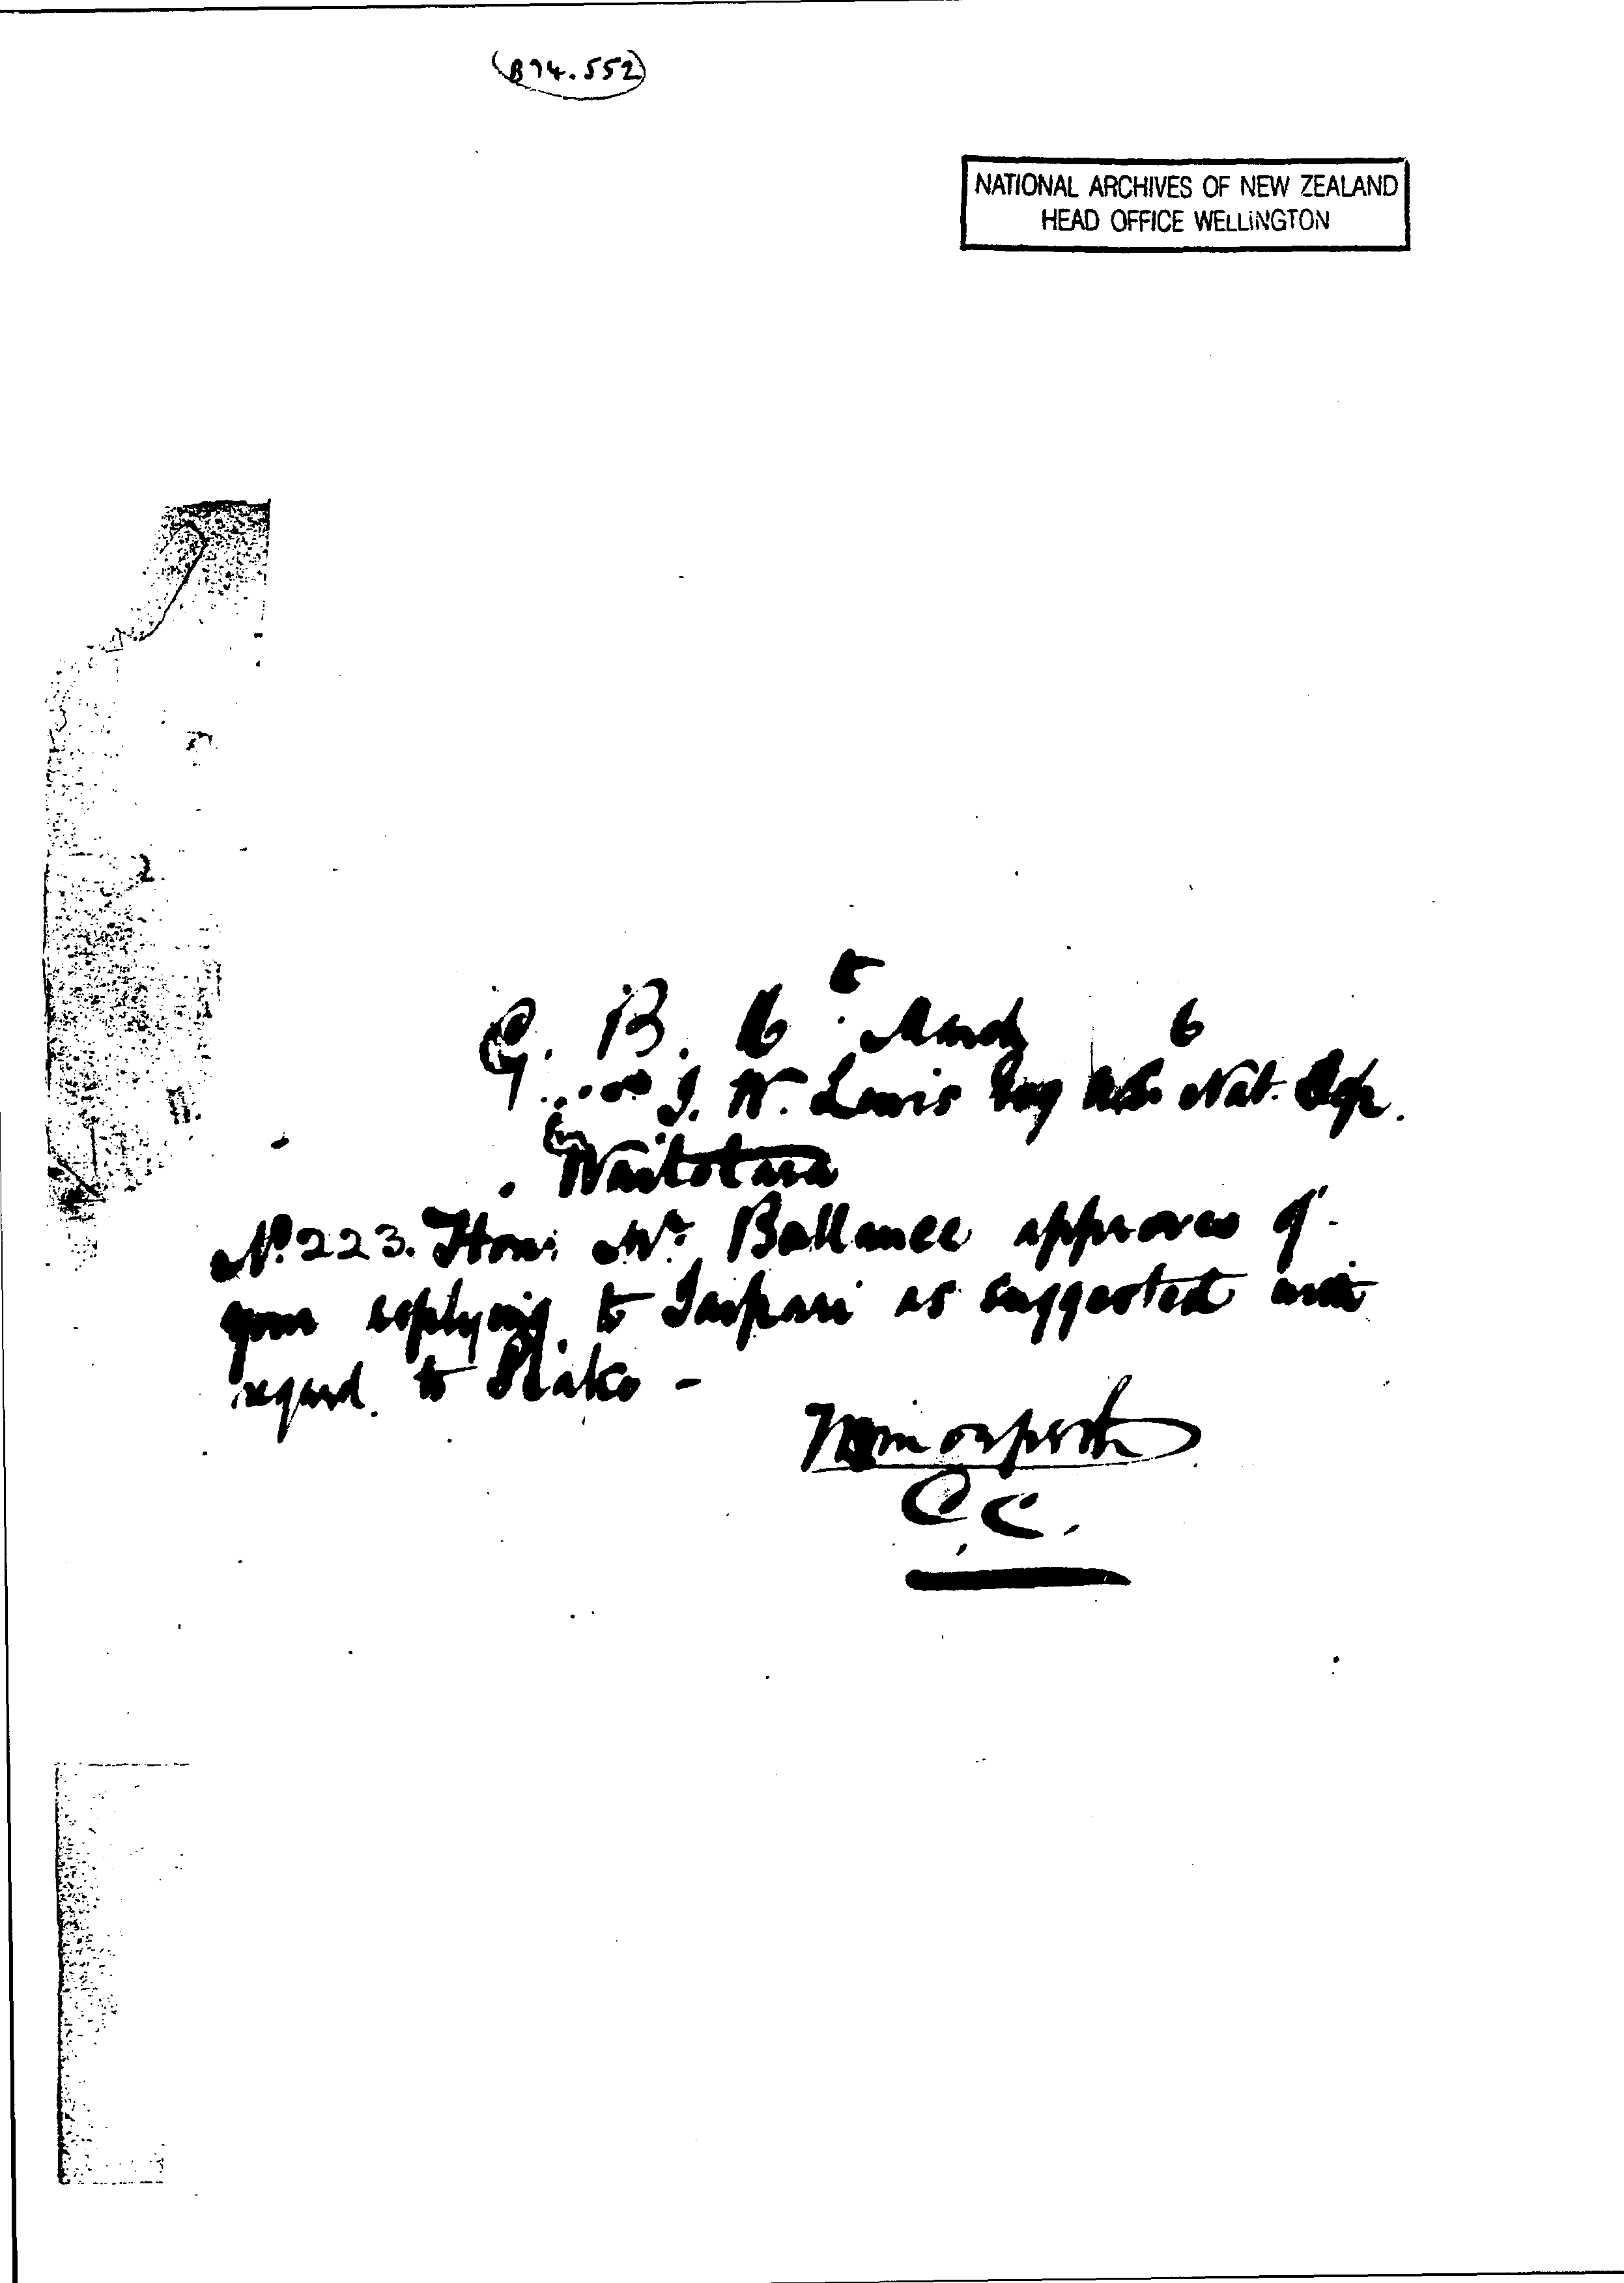 (B94.552)
NATIONAL ARCHIVES OF NEW ZEALAND
HEAD OFFICE WELLINGTON
G. B. 6 March 6
J. W. Lewis Esq U.S. Nat. Dep.
Waitotara
No. 223. Hon: Mr. Ballance approves of
your replying to Taipari as suggested with
regard to Piako -
C.C.